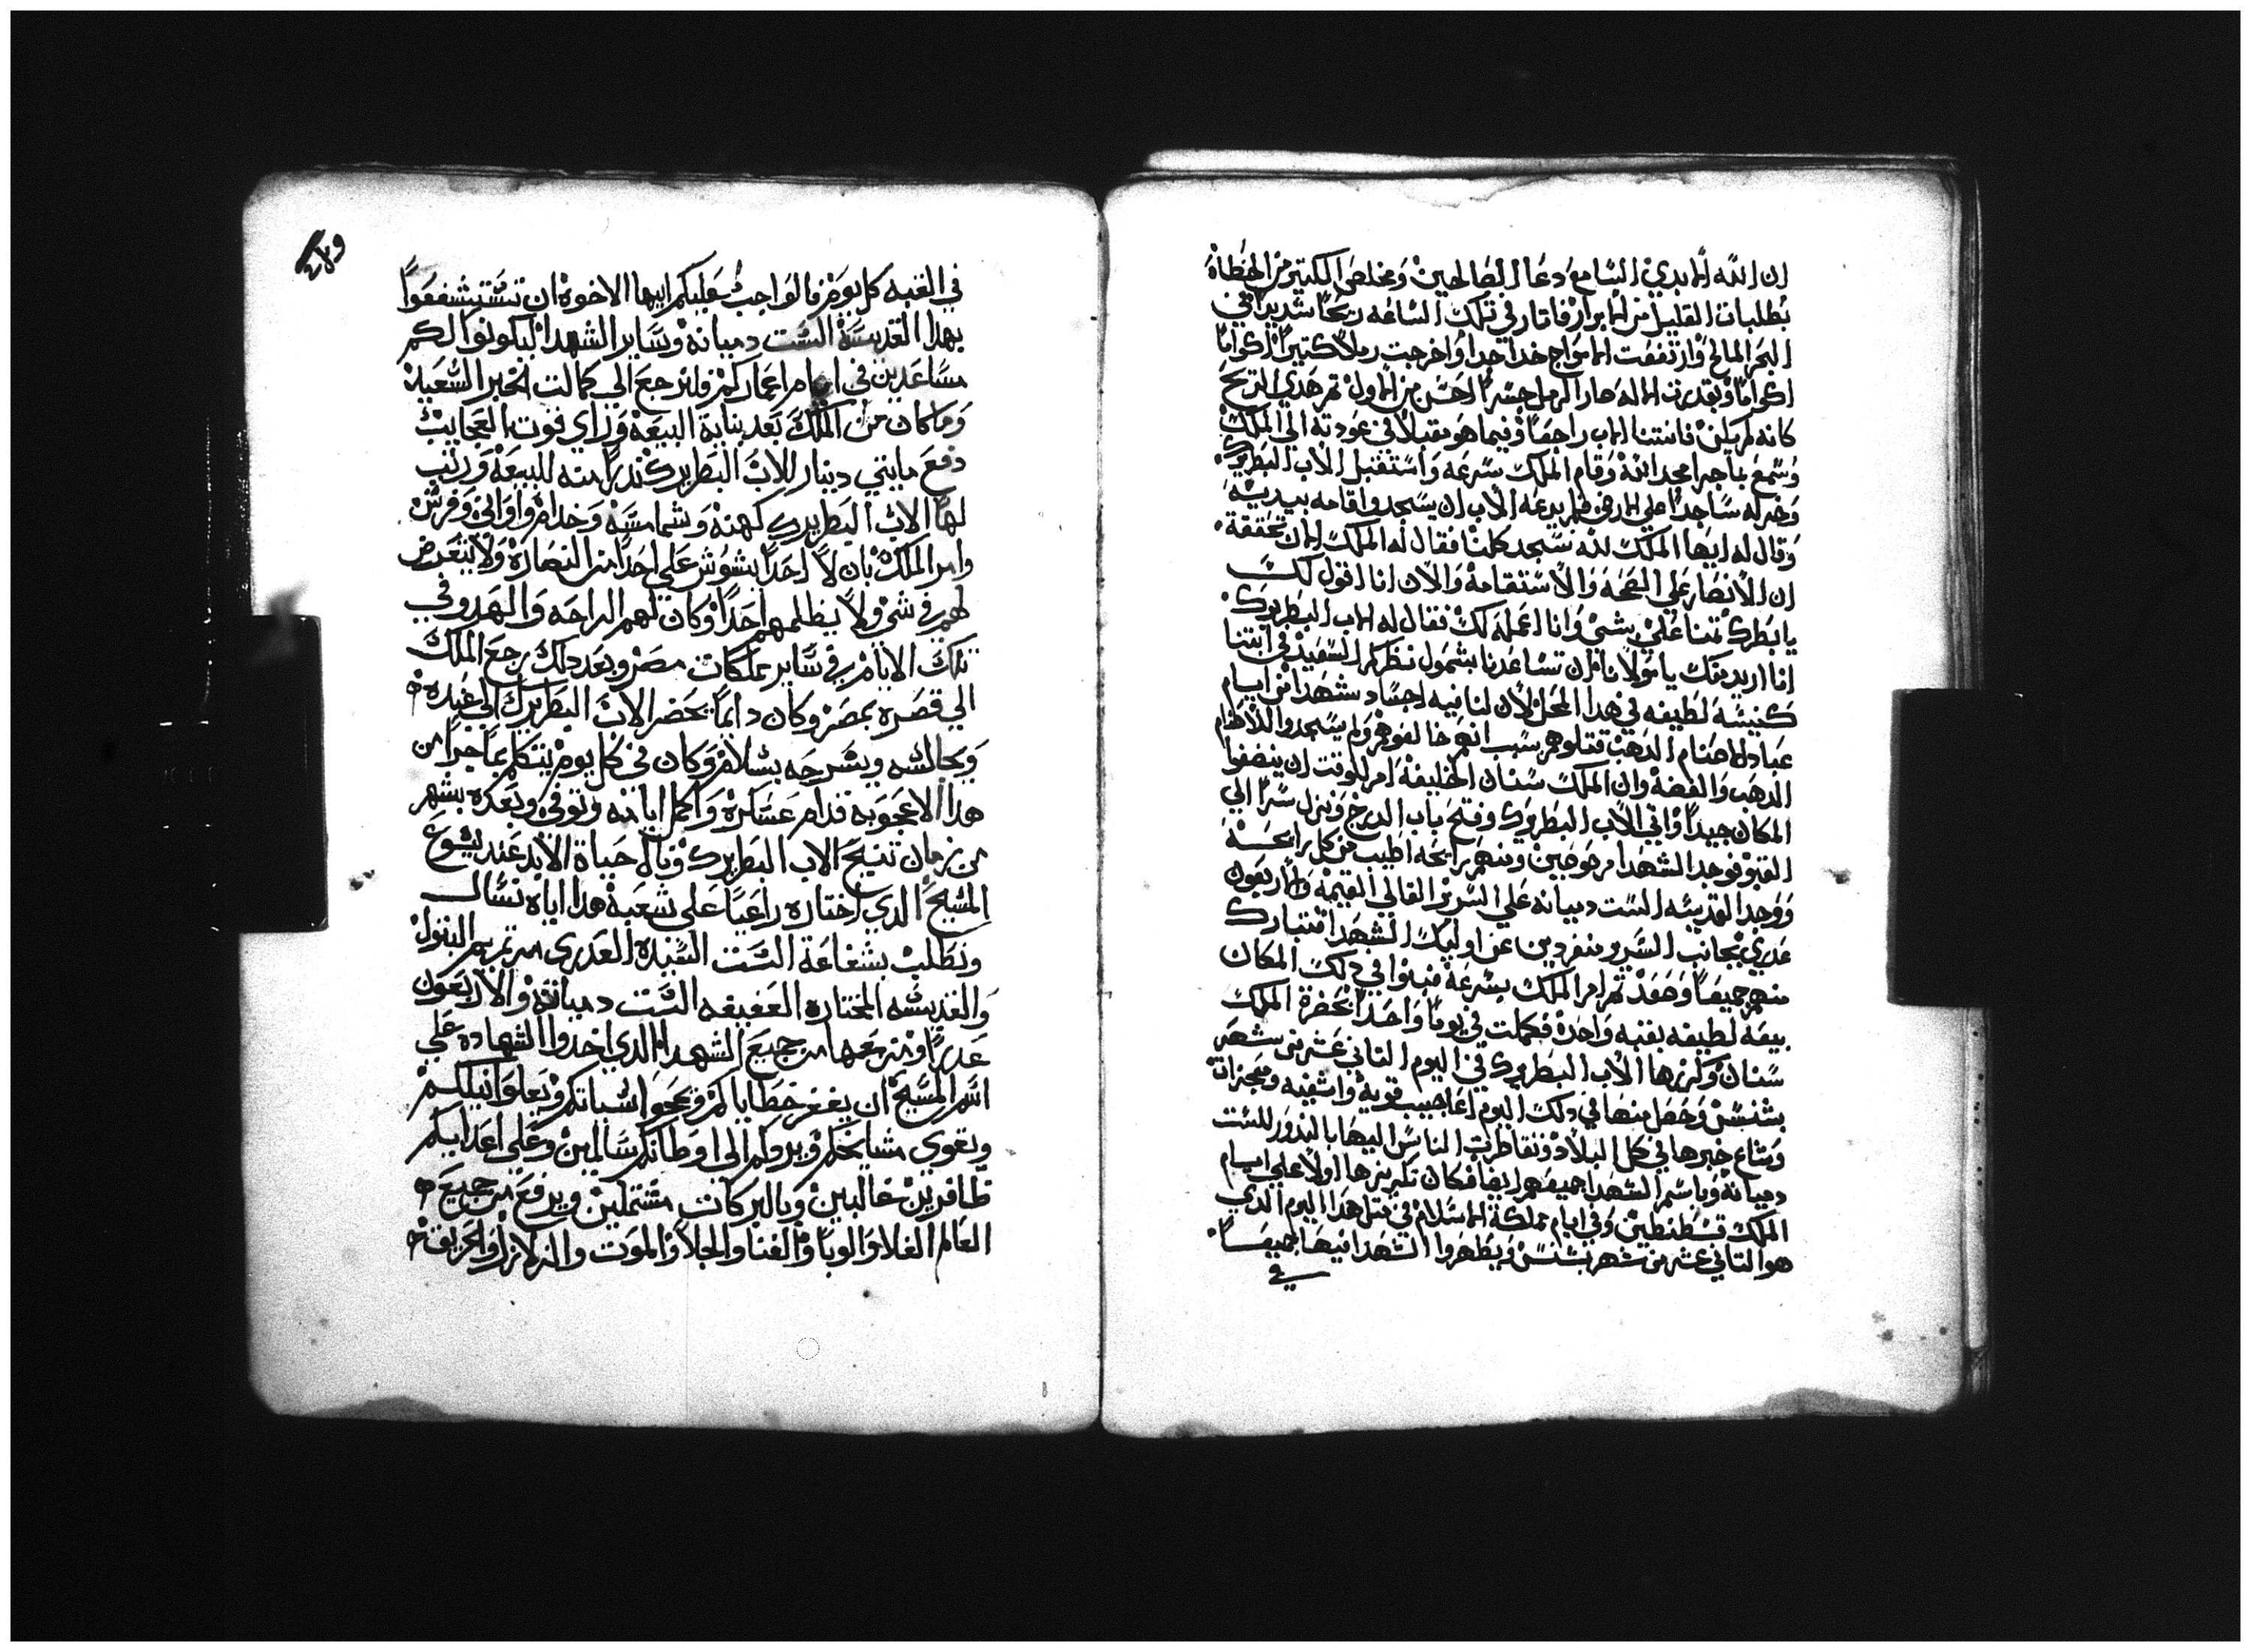 ان الله الابدي السامع دعا الصالحين ومخلص الكتير من الخطاة
بطلبات القليل من الابرار فاتار في تلك الساعه ريحًا شديدًا في
البحر المالح وارتفعت الامواج جدا جدا واخرجت رملاً كتيرا اكوامًا
اكوامًا وبقدرت الاله صار الرمل جسرًا احسن من الاول تم هدي الريح
كانه لم يكن فانتنا الاب راجعًا وفيما هو مقبلاً في عودته الي الملك
وسمع باجرا مجد الله وقام الملك بسرعه واستقبل الاب البطريرك
وخر له ساجدا علي الارض فلم يدعه الاب ان يسجد واقامه بيديه
وقال له ايها الملك لله نسجد كلنا فقال له الملك الان تحققة
ان الانصار علي الصحه والاستقامة والان انا اقول لك
يا بطرك تمنا علي بشي وانا اعمله لك فقال له الاب البطريرك
انا اريد منك يا مولانا ان تساعدنا بشمول نظركم السعيد في ابتنا
كنيسه لطيفه في هدا المحل لان لنا فيه اجساد شهدا من ايام
عباد الاصنام الدهب قتلوهم بسبب انهم خالفوهم ولم يسجدوا للاصنام
الدهب والفضه وان الملك سنان الخليفه امر للوقت ان ينضفوا
المكان جيدًا واتي الاب البطريرك وفتح باب الدرج ونزل سرًا الي
القبو فوجد الشهدا مرصوصين ومنهم رايحه اطيب من كل رايحه
ووجد القديسه الست دميانه علي السرير الغالي القيمه والاربعون
عدري بجانب السرير منفردين عن اوليك الشهدا فتبارك
منهم جميعًا وصعد تم امر الملك بسرعه فبنوا في دلك المكان
بيعه لطيفه بقبه واحدة فكملت في يومًا واحدًا بحضرة الملك
سنان وكرزها الاب البطريرك في اليوم التاني عشر من شهر
بشنس وحصل منها في دلك اليوم اعاجيب قويه واشفيه ومعجزات
وشاع خبرها في كل البلاد وتقاطرت الناس اليها بالندور للست
دميانه وباسم الشهدا جميعهم ايضا فكان تكريزها اولا علي ايام
الملك قسطنطين وفي ايام مملكة الاسلام في متل هدا اليوم الدي
هو التاني عشر من شهر بشنس ويظهروا الشهدا فيها جميعًا
في
في القبه كل يوم فالواجب عليكم ايها الاخوه ان تستشفعوا
بهدا القديسة الست دميانه وساير الشهدا ليكونوا لكم
مساعدين في ايام اعماركم ولنرجع الي كمالت الخبر السعيد
وما كان من الملك بعد بناية البيعه وراي قوت العجايب
دفع مايتي دينار للاب البطريرك ندرًا منه للبيعه ورتب
لها الاب البطريرك كهنه وشمامسه وخدام واواني وفرش
وامر الملك بان لا احدًا يشوش علي احدًا من النصاره ولا يتعرض
لهم في شي ولا يظلمهم احدًا وكان لهم الراحه والهدو في
تلك الايام في ساير مملكات مصر وبعد دلك رجع الملك
الي قصره بمصر وكان دايمًا يحضر الاب البطريرك الي عنده
ويجالسه ويسرحه بسلام وكان في كل يوم يتكلم بما جرا من
هدا الاعجوبه قدام عساكره واكمل ايامه وتوفي وبعده بشهر
من زمان تنيح الاب البطريرك ونال حياة الابد عند يسوع
المسيح الدي اختاره راعيًا علي شعبة هدا اياه نسال
ونطلب بشفاعة الست السيده العدري مرتمريم البتول
والقديسه المختاره العفيفه الست دميانه والاربعون
عدري ومن معها من جميع الشهدا الدي اخدوا الشهاده علي
اسم المسيح ان يغفر خطاياكم ويمحوا اسياتكم ويعلوا نيلكم
ويقوي مشايخكم ويردكم الي اوطانكم سالمين وعلي اعدايكم
ظافرين غالبين وبالبركات مشتملين ويرفع من جميع
العالم الغلا والوبا والفنا والجلا والموت والزلازل والحريق